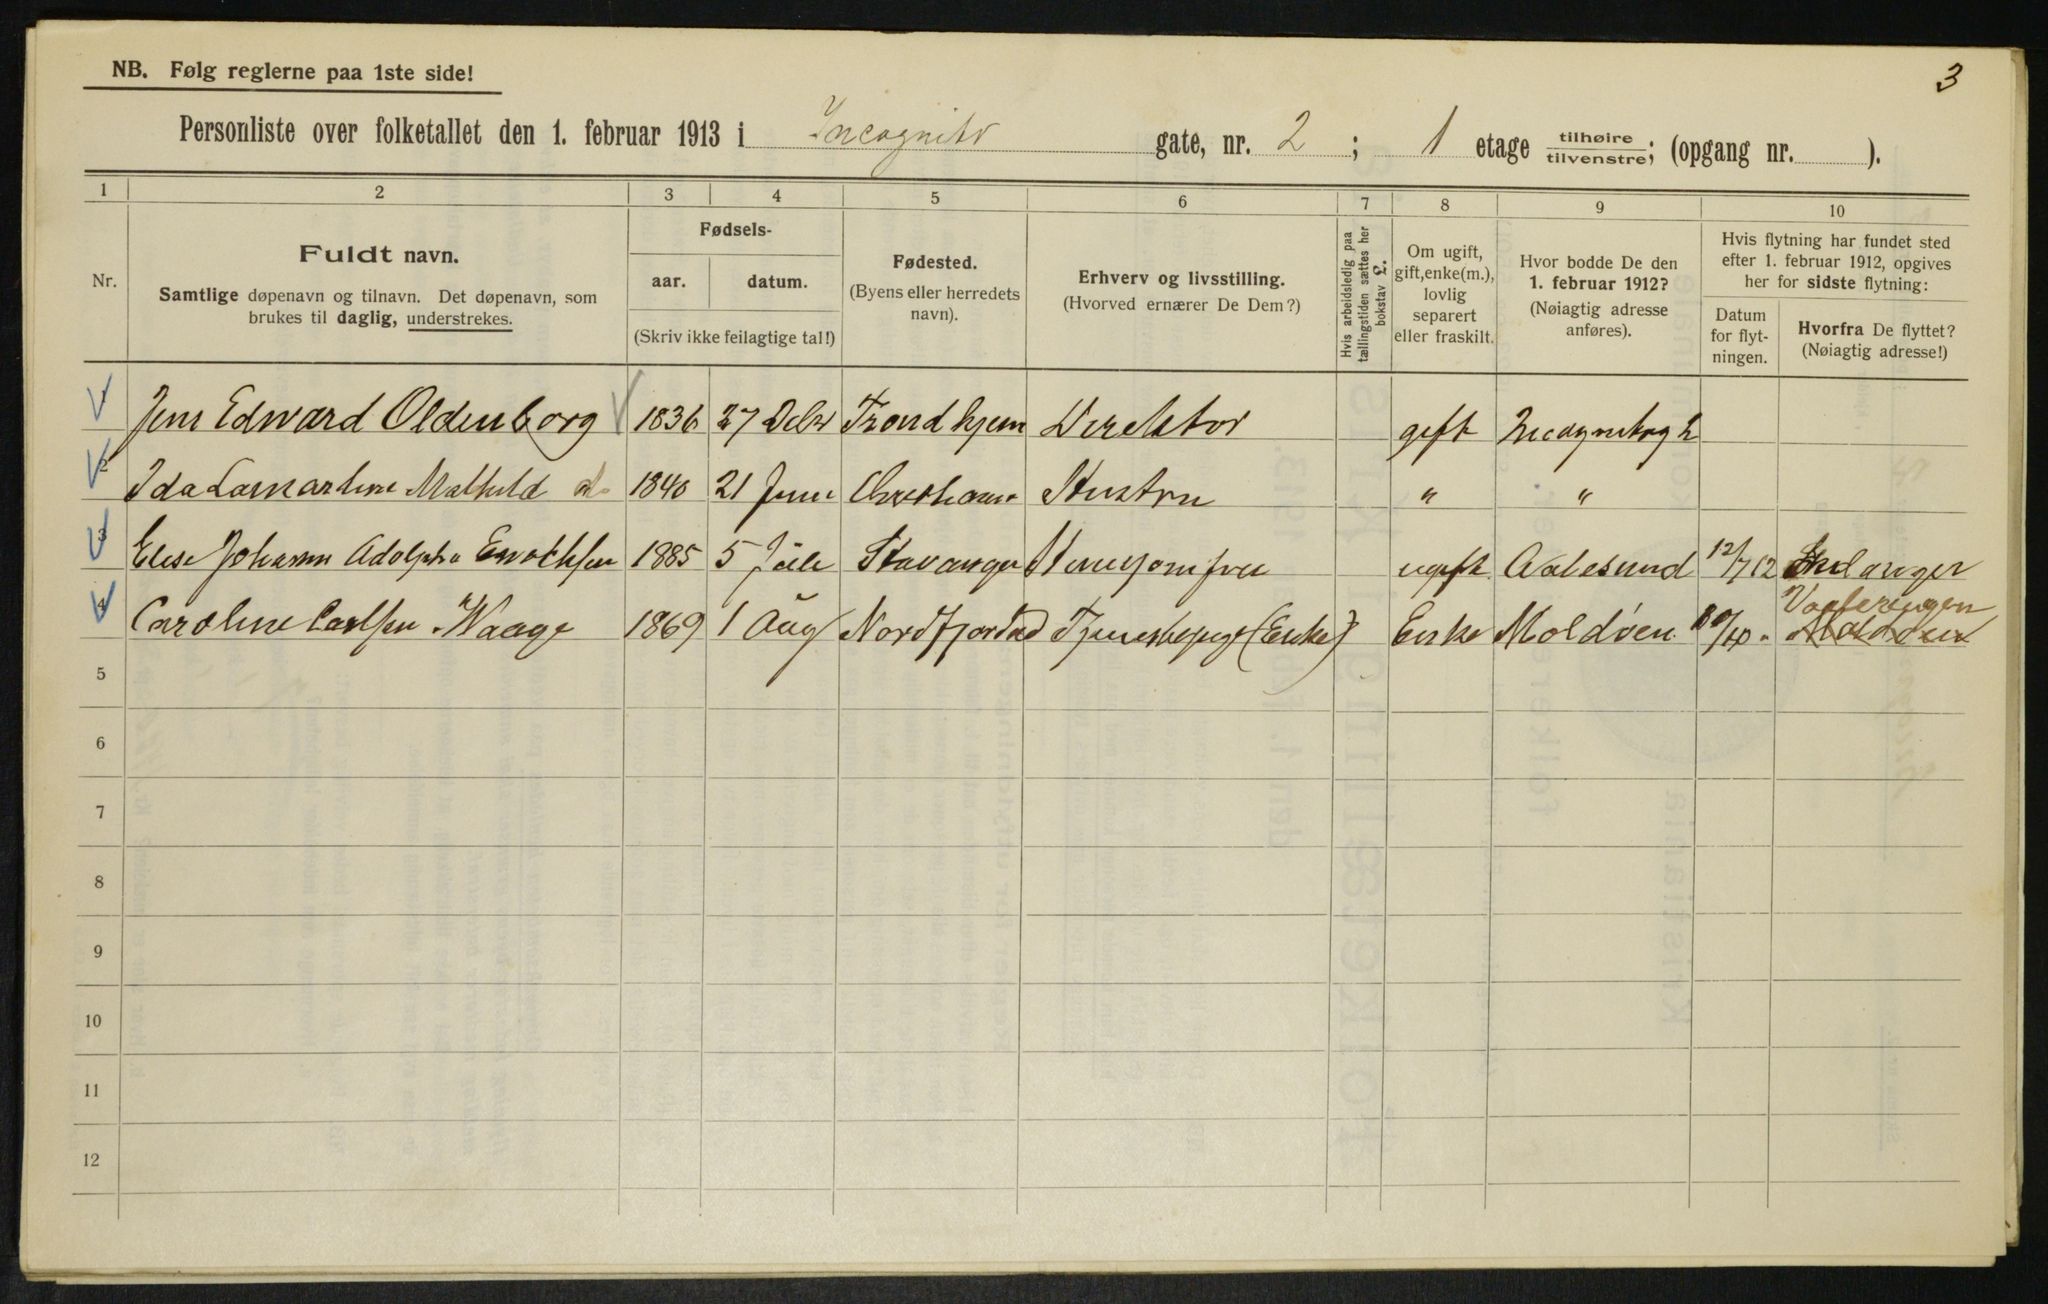 3
NB. Følg reglerne paa 1ste side!
Personliste over folketallet den 1. februar 1913 i Incognito gate, nr. 2 ; 1 etage tilhøire / tilvenstre; (opgang nr. ).
1 2 3 4 5 6 7 8 9 10
Nr.
Fuldt navn.
Samtlige døpenavn og tilnavn. Det døpenavn, som
brukes til daglig, understrekes.
Fødsels-
aar. datum.
(Skriv ikke feilagtige tal!)
Fødested.
(Byens eller herredets
navn).
Erhverv og livsstilling.
(Hvorved ernærer De Dem?)
Hvis arbeidsledig paa
tællingstiden sættes her
bokstav L.
Om ugift,
gift, enke(m.),
lovlig
separert
eller fraskilt.
Hvor bodde De den
1. februar 1912?
(Nøiagtig adresse
anføres).
Hvis flytning har fundet sted
efter 1. februar 1912, opgives
her for sidste flytning:
Datum
for flyt-
ningen.
Hvorfra De flyttet?
(Nøiagtig adresse!)
1 Jens Edward Oldenborg 1836 27 Trondhjem Direktør gift
2 Ida Lamartine Mathild do 1840 21 Juni Christiania Hustru " "
3 Elise Johanne Adolpha Enochsen 1885 5 Juli Stavanger ugift Aalesund 12/7 12
4 Caroline Carlsen Waage 1869 1 Aug Nordfjord (Enke) Enke Moldöen
5
6
7
8
9
10
11
12